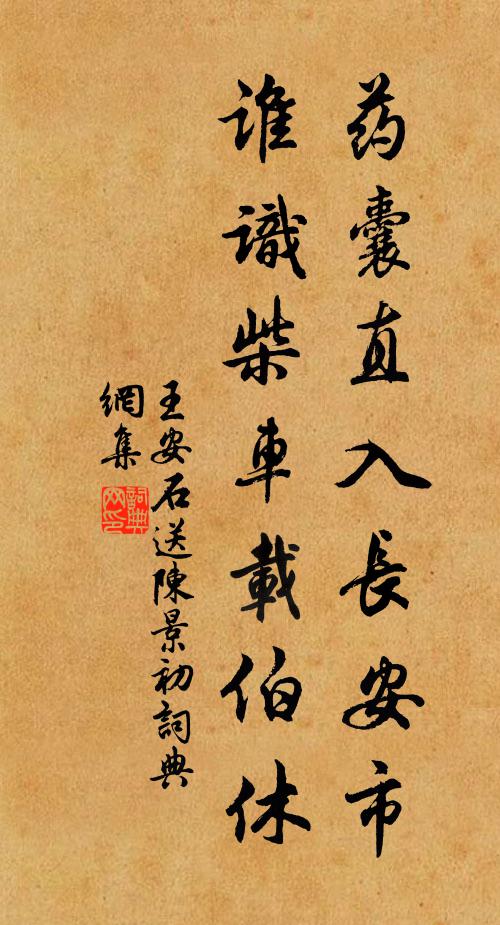 药囊直入長安市
誰識柴車載伯休
王安石送陳景初詞典
網集
詞典
网印